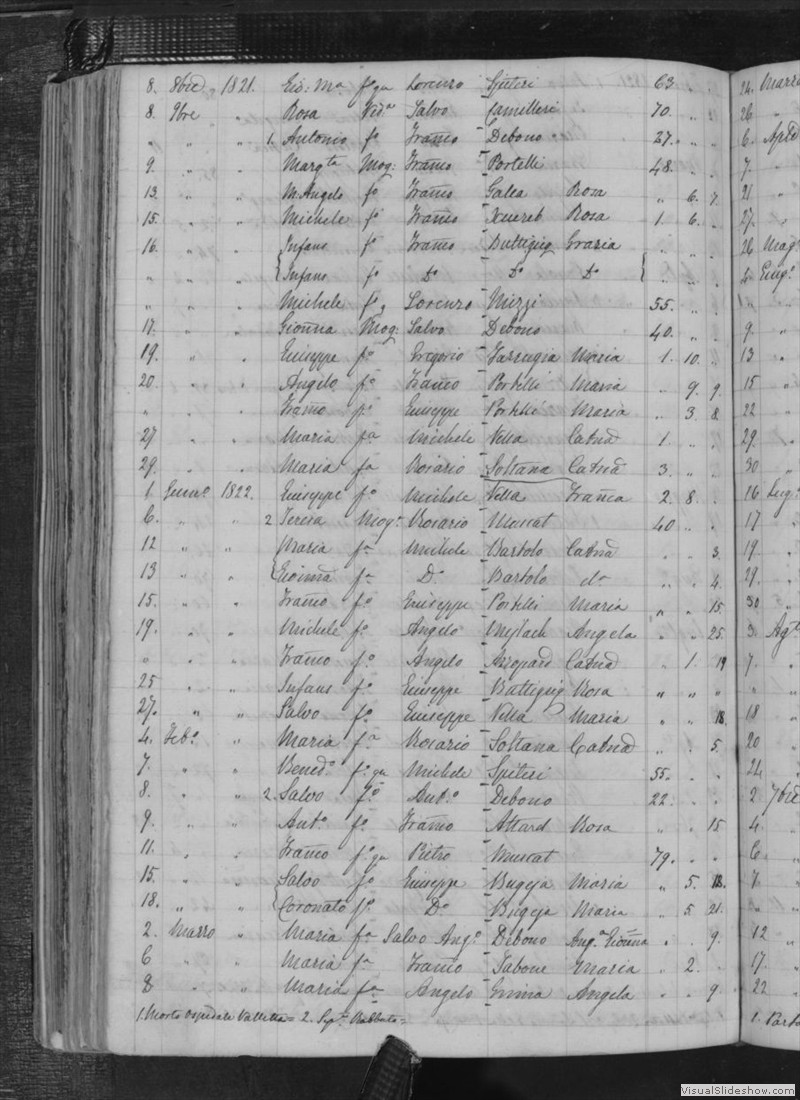 8. 8bre 1821. Gio: Ma fo qu Lorenzo Spiteri 63 24. Marzo
8. 9bre " Rosa Veda Salvo Camilleri 70. 26
" " " 1. Antonio fo Franco Debono 27. 6. Aple
9. " " Margta Mog: Franco Portelli 48. 7.
13. " " M. Angelo fo Franco Galea Rosa " 6. 7. 21
15. " " Michele fo Franco Xuereb Rosa 1. 6. 27.
16. " " Infans fo Franco Buttigieg Grazia 26 Magо
" " " Infans fo Do Do Do 4 Giugo
" " " Michele fo q Lorenzo Mizzi 55.
17. " " Gionna Mog: Salvo Debono 40. 9
19. " " Giuseppe fo Gregorio Farrugia Maria 1. 10. 13
20. " " Angelo fo Franco Portelli Maria " 9. 9. 15
" " " Franco fo Giuseppe Portelli Maria " 3. 8. 22
27 " " Maria fa Michele Vella Catna 1. " 29.
29. " " Maria fa Rosario Soltana Catna 3. " 30
1 Genno 1822. Giuseppe fo Michele Vella Franca 2. 8. 16 Lugo
6. " " 2. Teresa Mog. Rosario Muscat 40 17
12 " " Maria fa Michele Bartolo Catna " " 3. 19.
13 " " Gionna fa Do Bartolo do " " 4. 29.
15. " " Franco fo Giuseppe Portelli Maria " " 15. 30
19. " " Michele fo Angelo Mejlach Angela " " 25. 3. Agto
" " " Franco fo Angelo Azzopard Catna " 1. 19 7.
25 " " Infans fo Giuseppe Buttigieg Rosa " " "
27. " " Salvo fo Giuseppe Vella Maria " " 18. 18
4. Febo " Maria fa Rosario Soltana Catna " " 5. 20
7. " " Bened.o fo qu Michele Spiteri 55. 24
8. " " 2. Salvo fo Anto Debono 22. 2 7bre
9. " " Anto fo Franco Attard Rosa " " 15 4.
11. " " Franco fo qu Pietro Muscat 79. 6
15. " " Salvo fo Giuseppe Bugeja Maria " 5. 18. 7.
18. " " Coronato fo Do Bugeja Maria " 5 21.
2. Marzo " Maria fa Salvo Ango Debono Ang.a Gionna " " 9. 12
6 " " Maria fa Franco Tabone Maria " 2. 17.
8 " " Maria fa Angelo Grima Angela " " 9. 22
1. Morto Ospedale Valletta = 2. Sepo Rabbato = 1.
VisualSlideshow.com